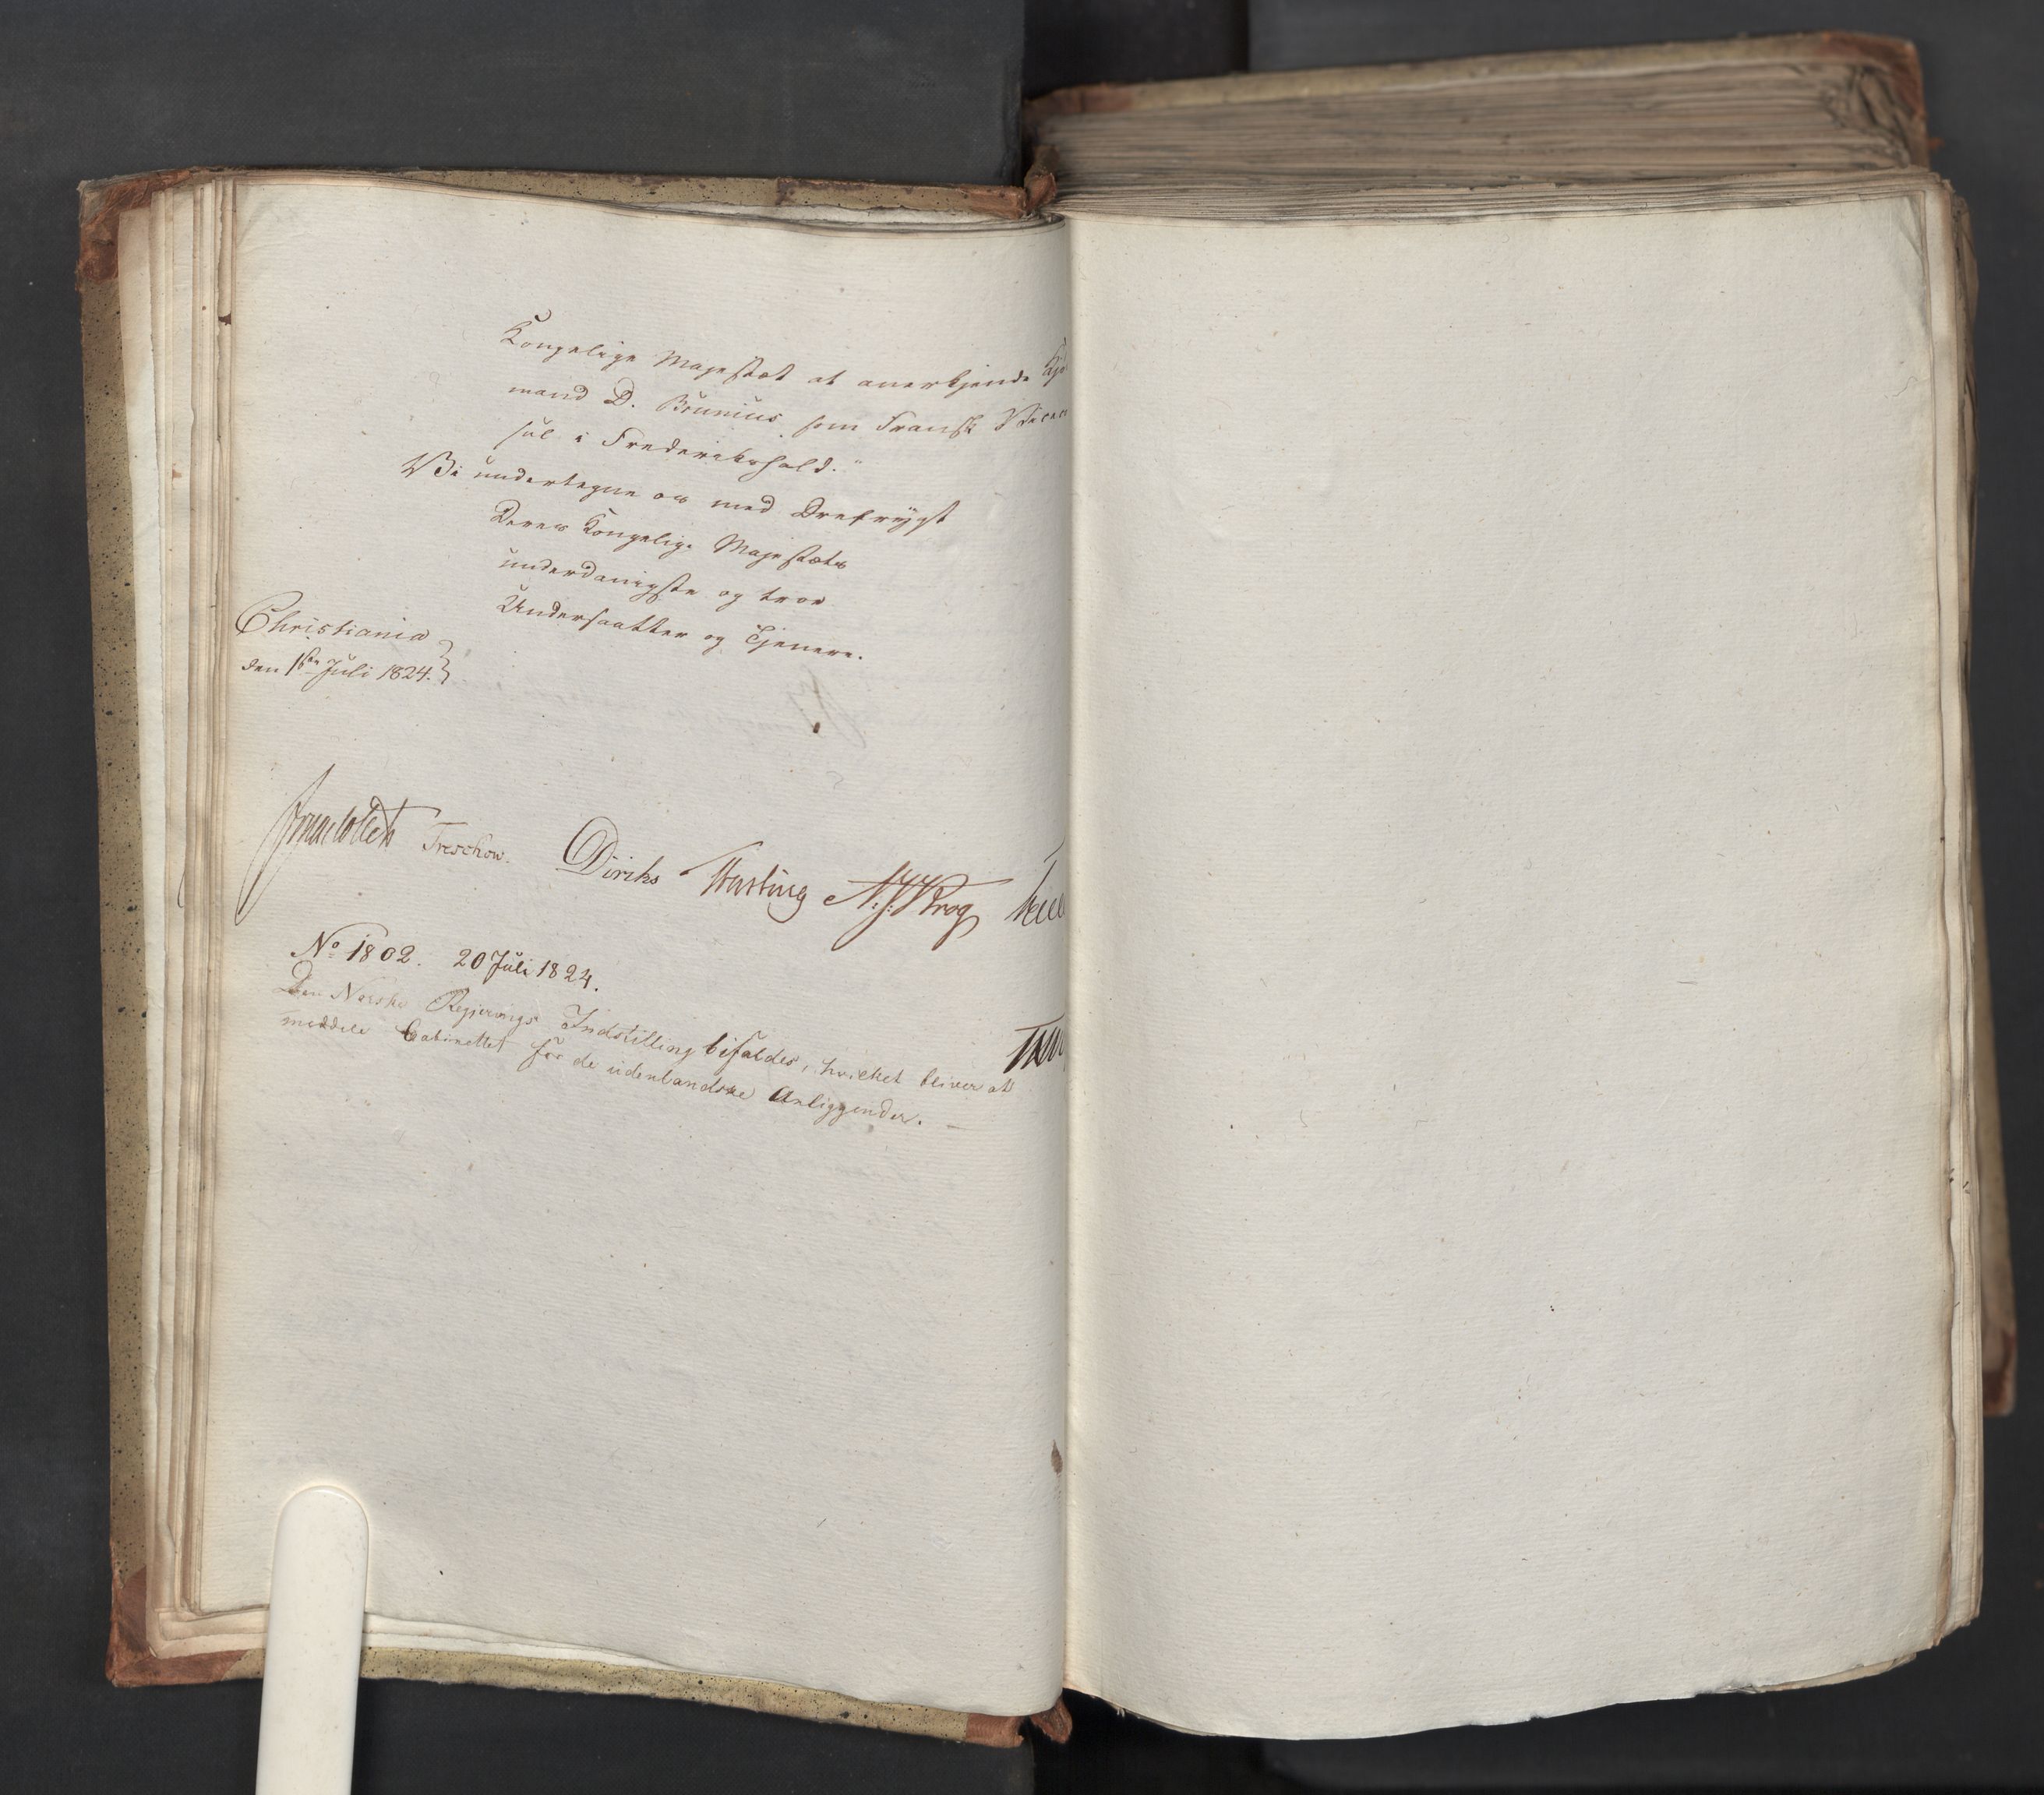 Kongelige Majestæt at anerkjende Kjø
mand D. Brunius som Fransk Vicec
sul i Frederikshald."
Vi undertegne os med Ærefrygt
Deres Kongelige Majestæts
underdanigste og troe
Undersaatter og Tjenere.
Christiania
den 1ste Juli 1824.
Treschow. Diriks N: J: Krog
No 1802. 20 Juli 1824.
Den Norske Regjerings Indstilling bifaldes, hvilket bliver at
meddele Cabinettet for de udenlandske Anliggender. —